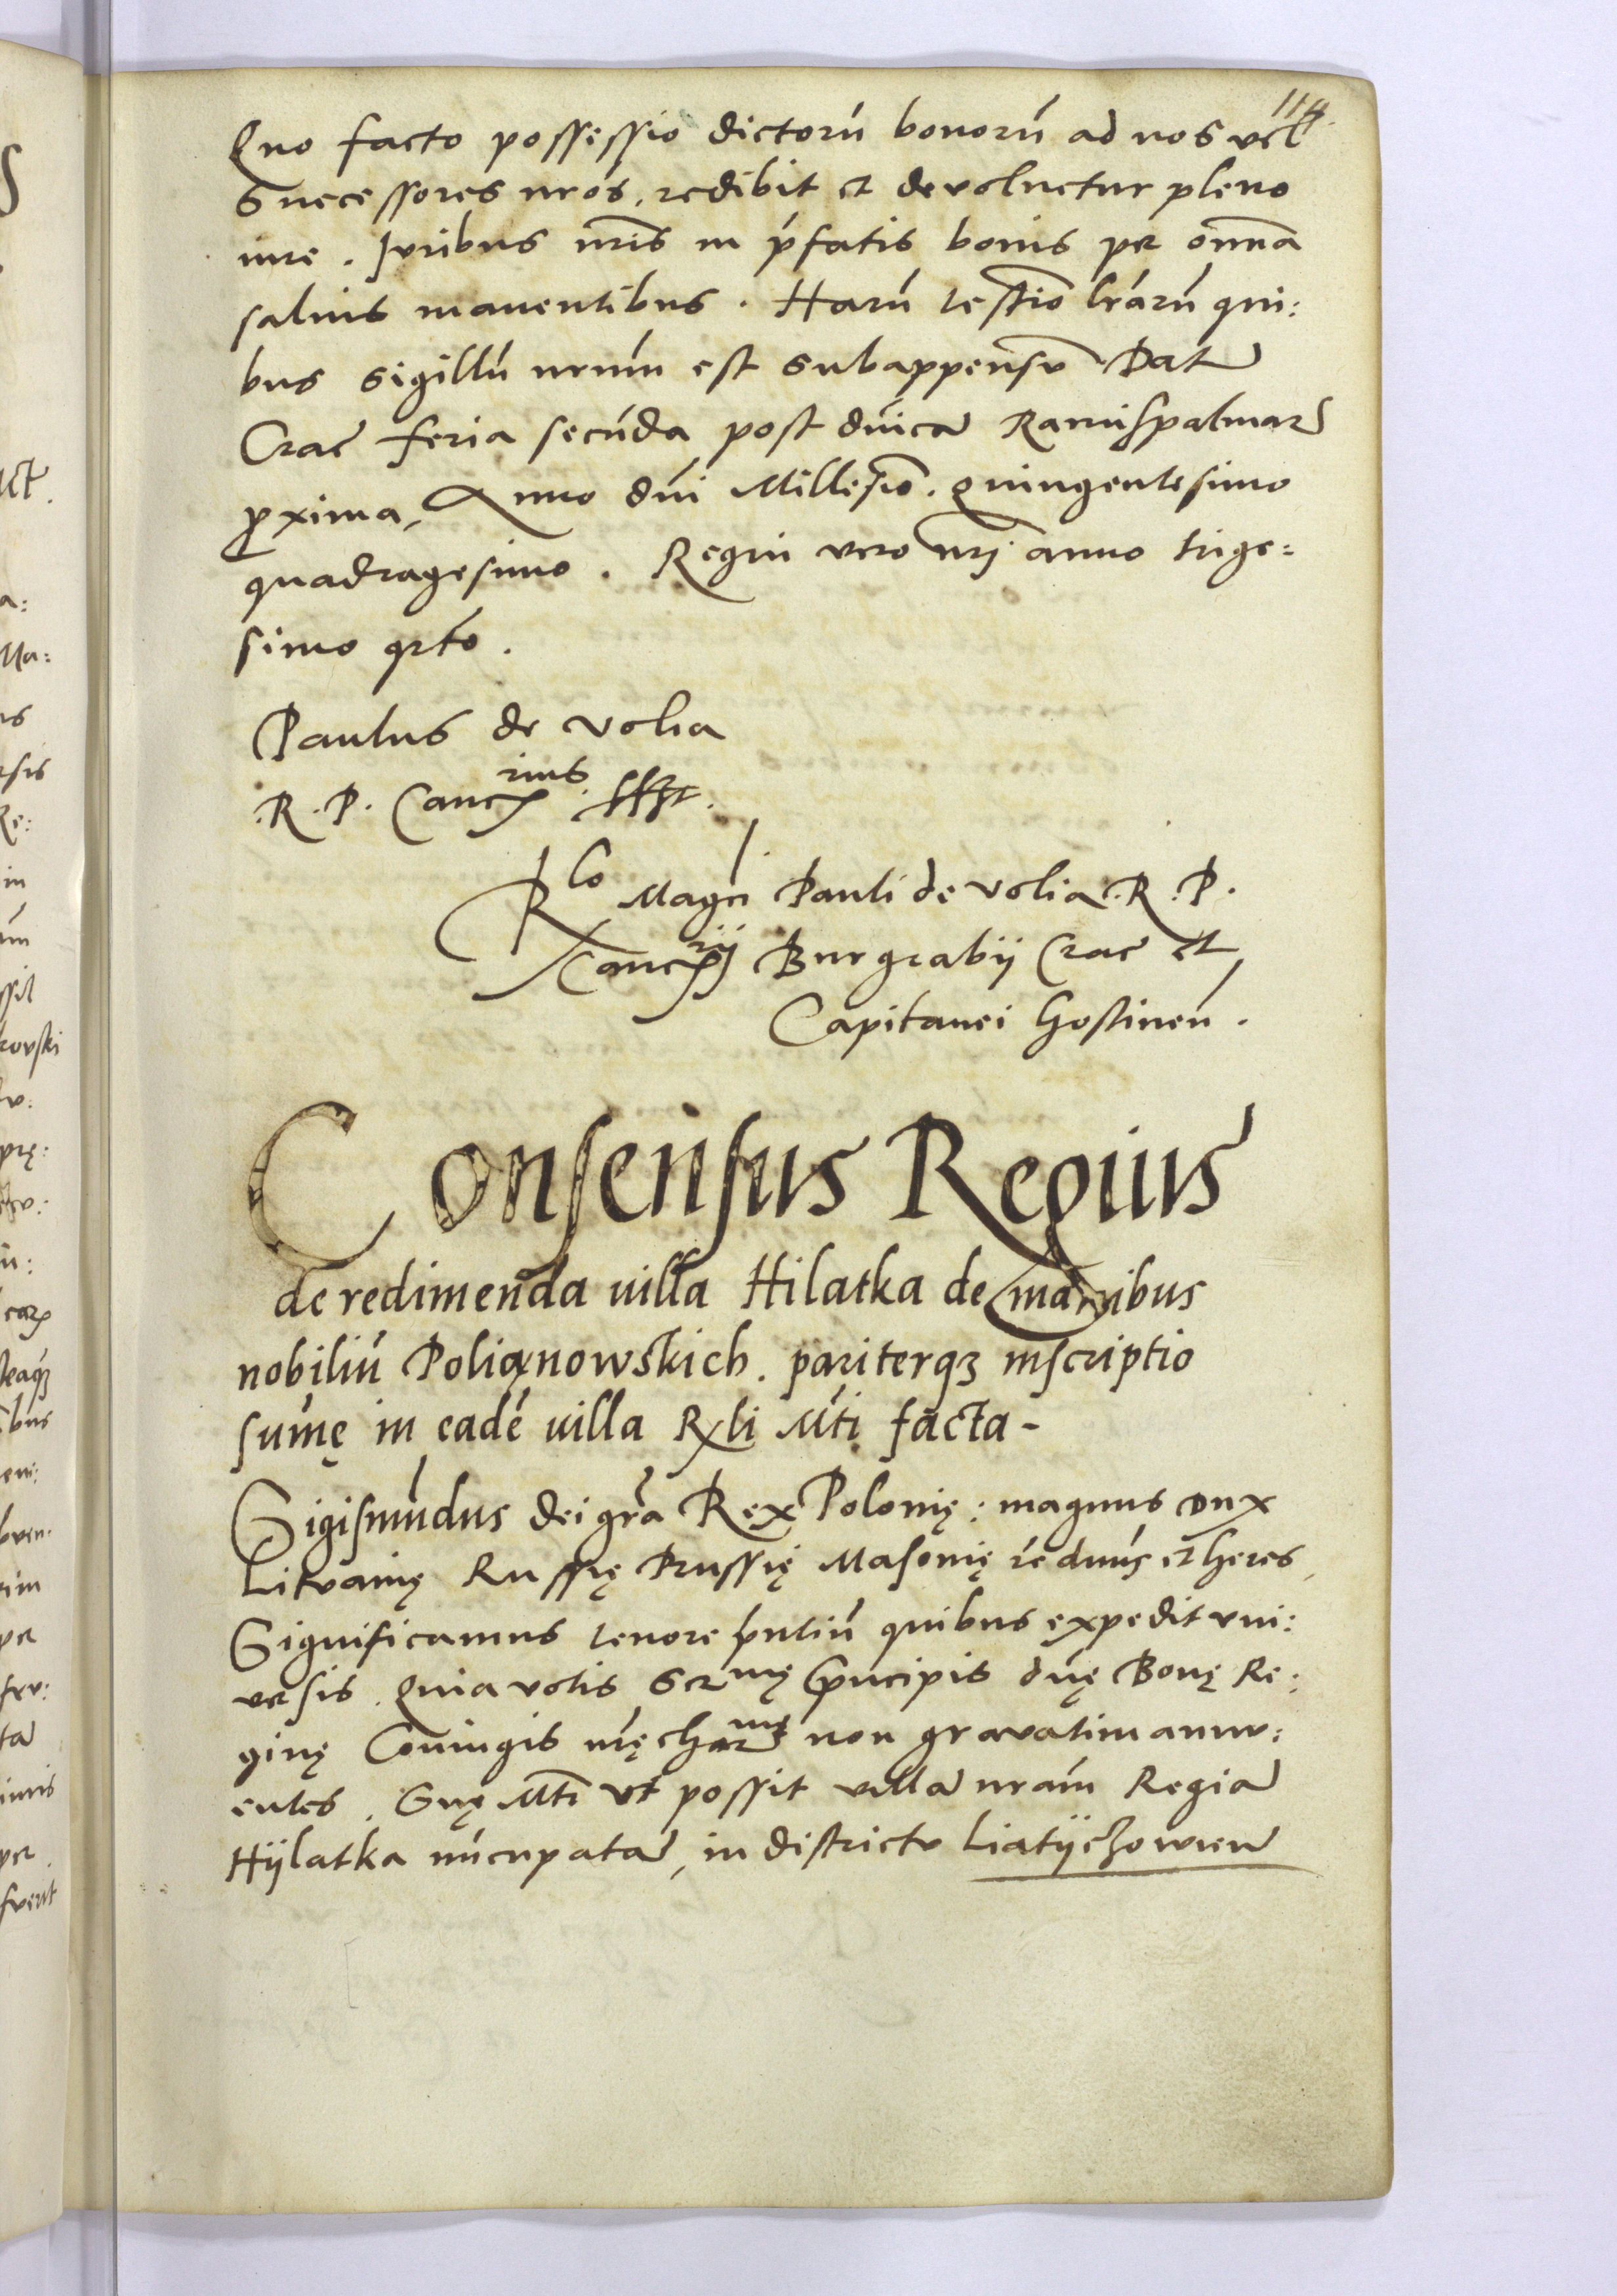 114.
Quo facto possessio dictorū bonorū ad nos vel
Successores nr̄os. redibit et devoluetur pleno
iure. Juribus nr̄is in p̄fatis bonis per om̄ia
saluis manentibus. Harū testi͠o lr̄arū qui:
bus sigillū nr̄um est subappensū. Dat
Crac̄ feria secūda post dn̄icā Ramispalmar
proxima, Anno dn̄i Millesi͠o. Quingentesimo
quadragesimo. Regni vero nr̄j anno trige=
simo qrto.
Paulus de volia
R. P. Cancrius. sst.
Rlo Magci Pauli de volia. R. P.
Cancrij Burgrabij Crac̄ et
Capitanei Gostinen̄.
Consensus Regius
de redimenda uilla Hilatka de manibus
nobiliū Polianowskich. pariterqȝ inscriptio
sum̄ę in eadē uilla Rgli Mti facta -
Sigismūdus dei gr̄a Rex Polonię: magnus Dux
Litvanię Russię Prussię Masonię ꝛc dn̄us et heres
Significamus tenore p̄ntiū quibus expedit vni:
versis. Quia votis Sermę Principis dn̄ę Bonę Re:
ginę Coniugis nr̄ę charmę non gravatim annv:
entes. Suę Mti vt possit villā nr̄am Regiā
Hÿlatka nūcupatā, in districtv Liatÿczowien̄